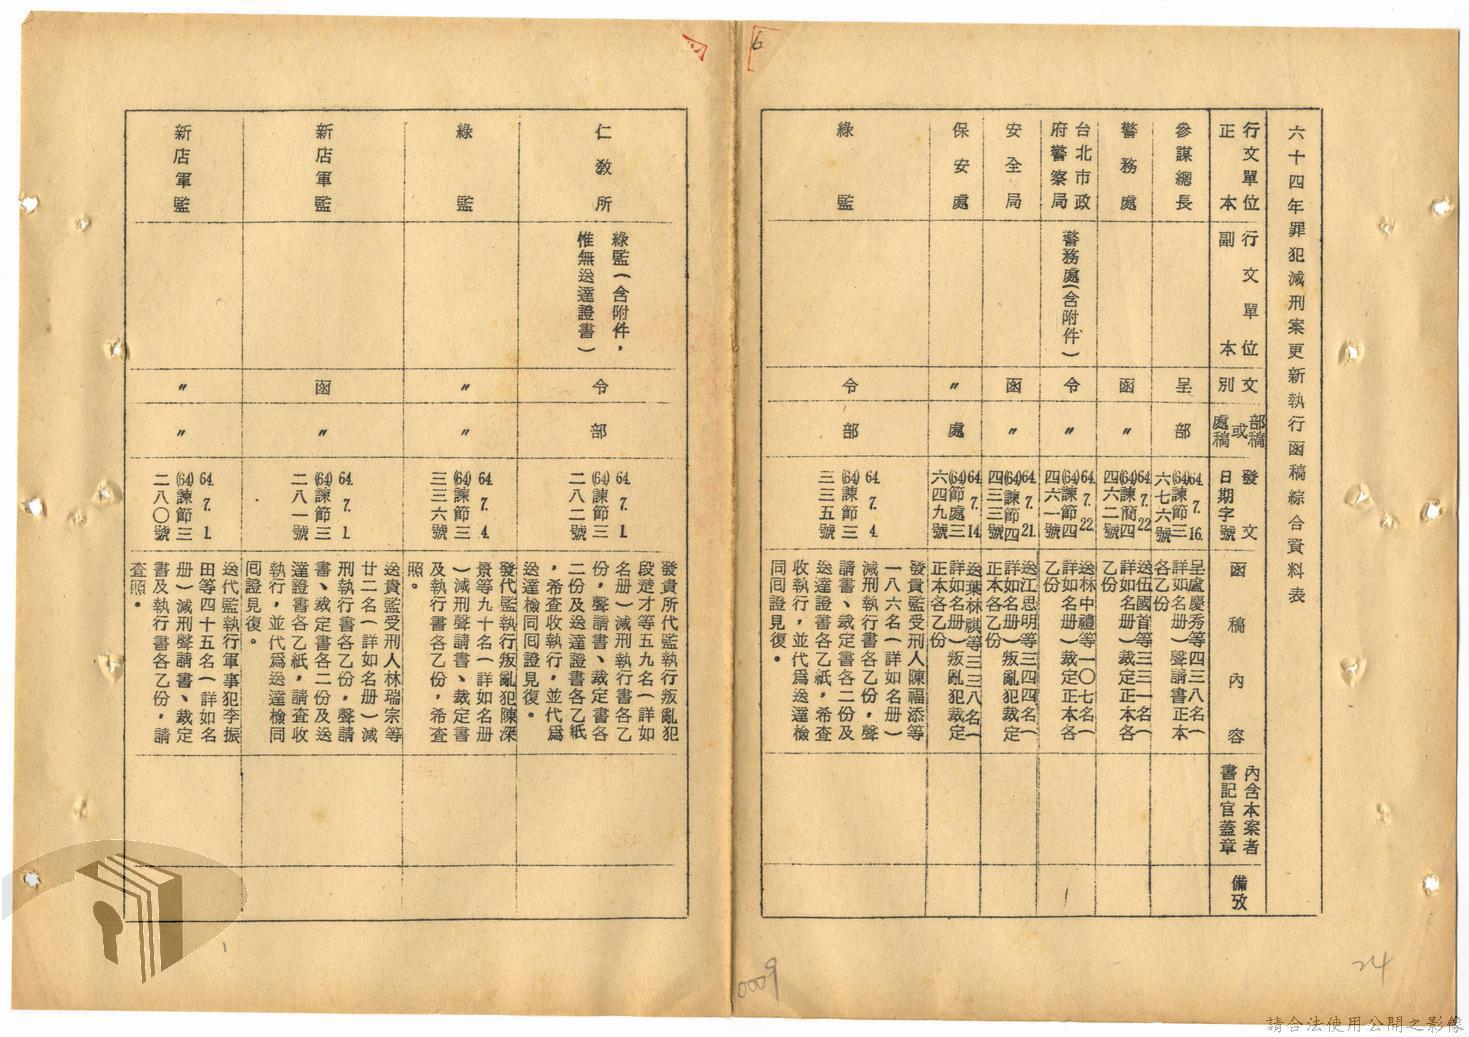 六十四年罪犯減刑案更新執行函稿綜合資料表
行文單位
正本
行文單位
副本
文別
部稿
或
處稿
發文
日期字號
函稿內容
內含本案者
書記官蓋章
備攷
參謀總長
呈
部
64. 7. 16.
(64)諫節三
六七六號
呈盧慶秀等四三八名(
詳如名册)聲請書正本
各乙份
警務處
函
〃
64. 7. 22.
(64)諫簡四
四六二號
送伍國首等三三一名(
詳如名册)裁定正本各
乙份
台北市政
府警察局
警務處(含附件)
令
〃
64. 7. 22.
(64)諫節四
四六一號
送林中禮等一〇七名(
詳如名册)裁定正本各
乙份
安全局
函
〃
64. 7. 21.
(64)諫節四
四三三號
送江思明等三四四名(
詳如名册)叛亂犯裁定
正本各乙份
保安處
〃
處
64. 7. 14.
(64)節處三
六四九號
送葉林祺等三三八名(
詳如名册)叛亂犯裁定
正本各乙份
綠監
令
部
64. 7. 4.
(64)諫節三
三三五號
發貴監受刑人陳福添等
一八六名(詳如名册)
減刑執行書各乙份,聲
請書、裁定書各二份及
送達證書各乙紙,希查
收執行,並代爲送達檢
同囘證見復。
仁教所
綠監(含附件,
惟無送達證書)
令
部
64. 7. 1.
(64)諫節三
二八二號
發貴所代監執行叛亂犯
段楚才等五九名(詳如
名册)減刑執行書各乙
份,聲請書、裁定書各
二份及送達證書各乙紙
,希查收執行,並代爲
送達檢同囘證見復。
綠監
〃
〃
64. 7. 4.
(64)諫節三
三三六號
發代監執行叛亂犯陳深
景等九十名(詳如名册
)減刑聲請書、裁定書
及執行書各乙份,希查
照。
新店軍監
函
〃
64. 7. 1.
(64)諫節三
二八一號
送貴監受刑人林瑞宗等
廿二名(詳如名册)減
刑執行書各乙份,聲請
書、裁定書各二份及送
達證書各乙紙,請查收
執行,並代爲送達檢同
囘證見復。
新店軍監
〃
〃
64. 7. 1.
(64)諫節三
二八〇號
送代監執行軍事犯李振
田等四十五名(詳如名
册)減刑聲請書、裁定
書及執行書各乙份,請
查照。
6
0009
24
請合法使用公開之影像